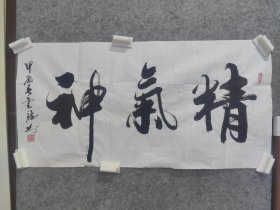 精氣神
甲辰